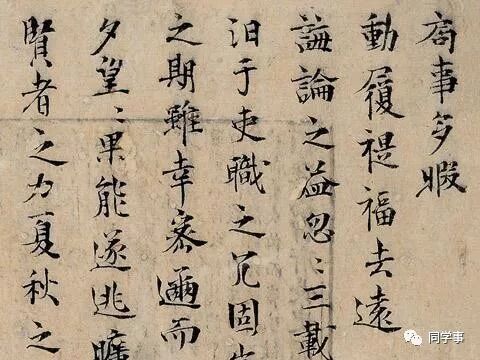 局事多暇
動履禔福去遠
誨論之益忽〻三載
汩于吏職之冗固
之期雖幸密邇而
夕望〻果能遂逃曠
賢者之力夏秋之
同学事